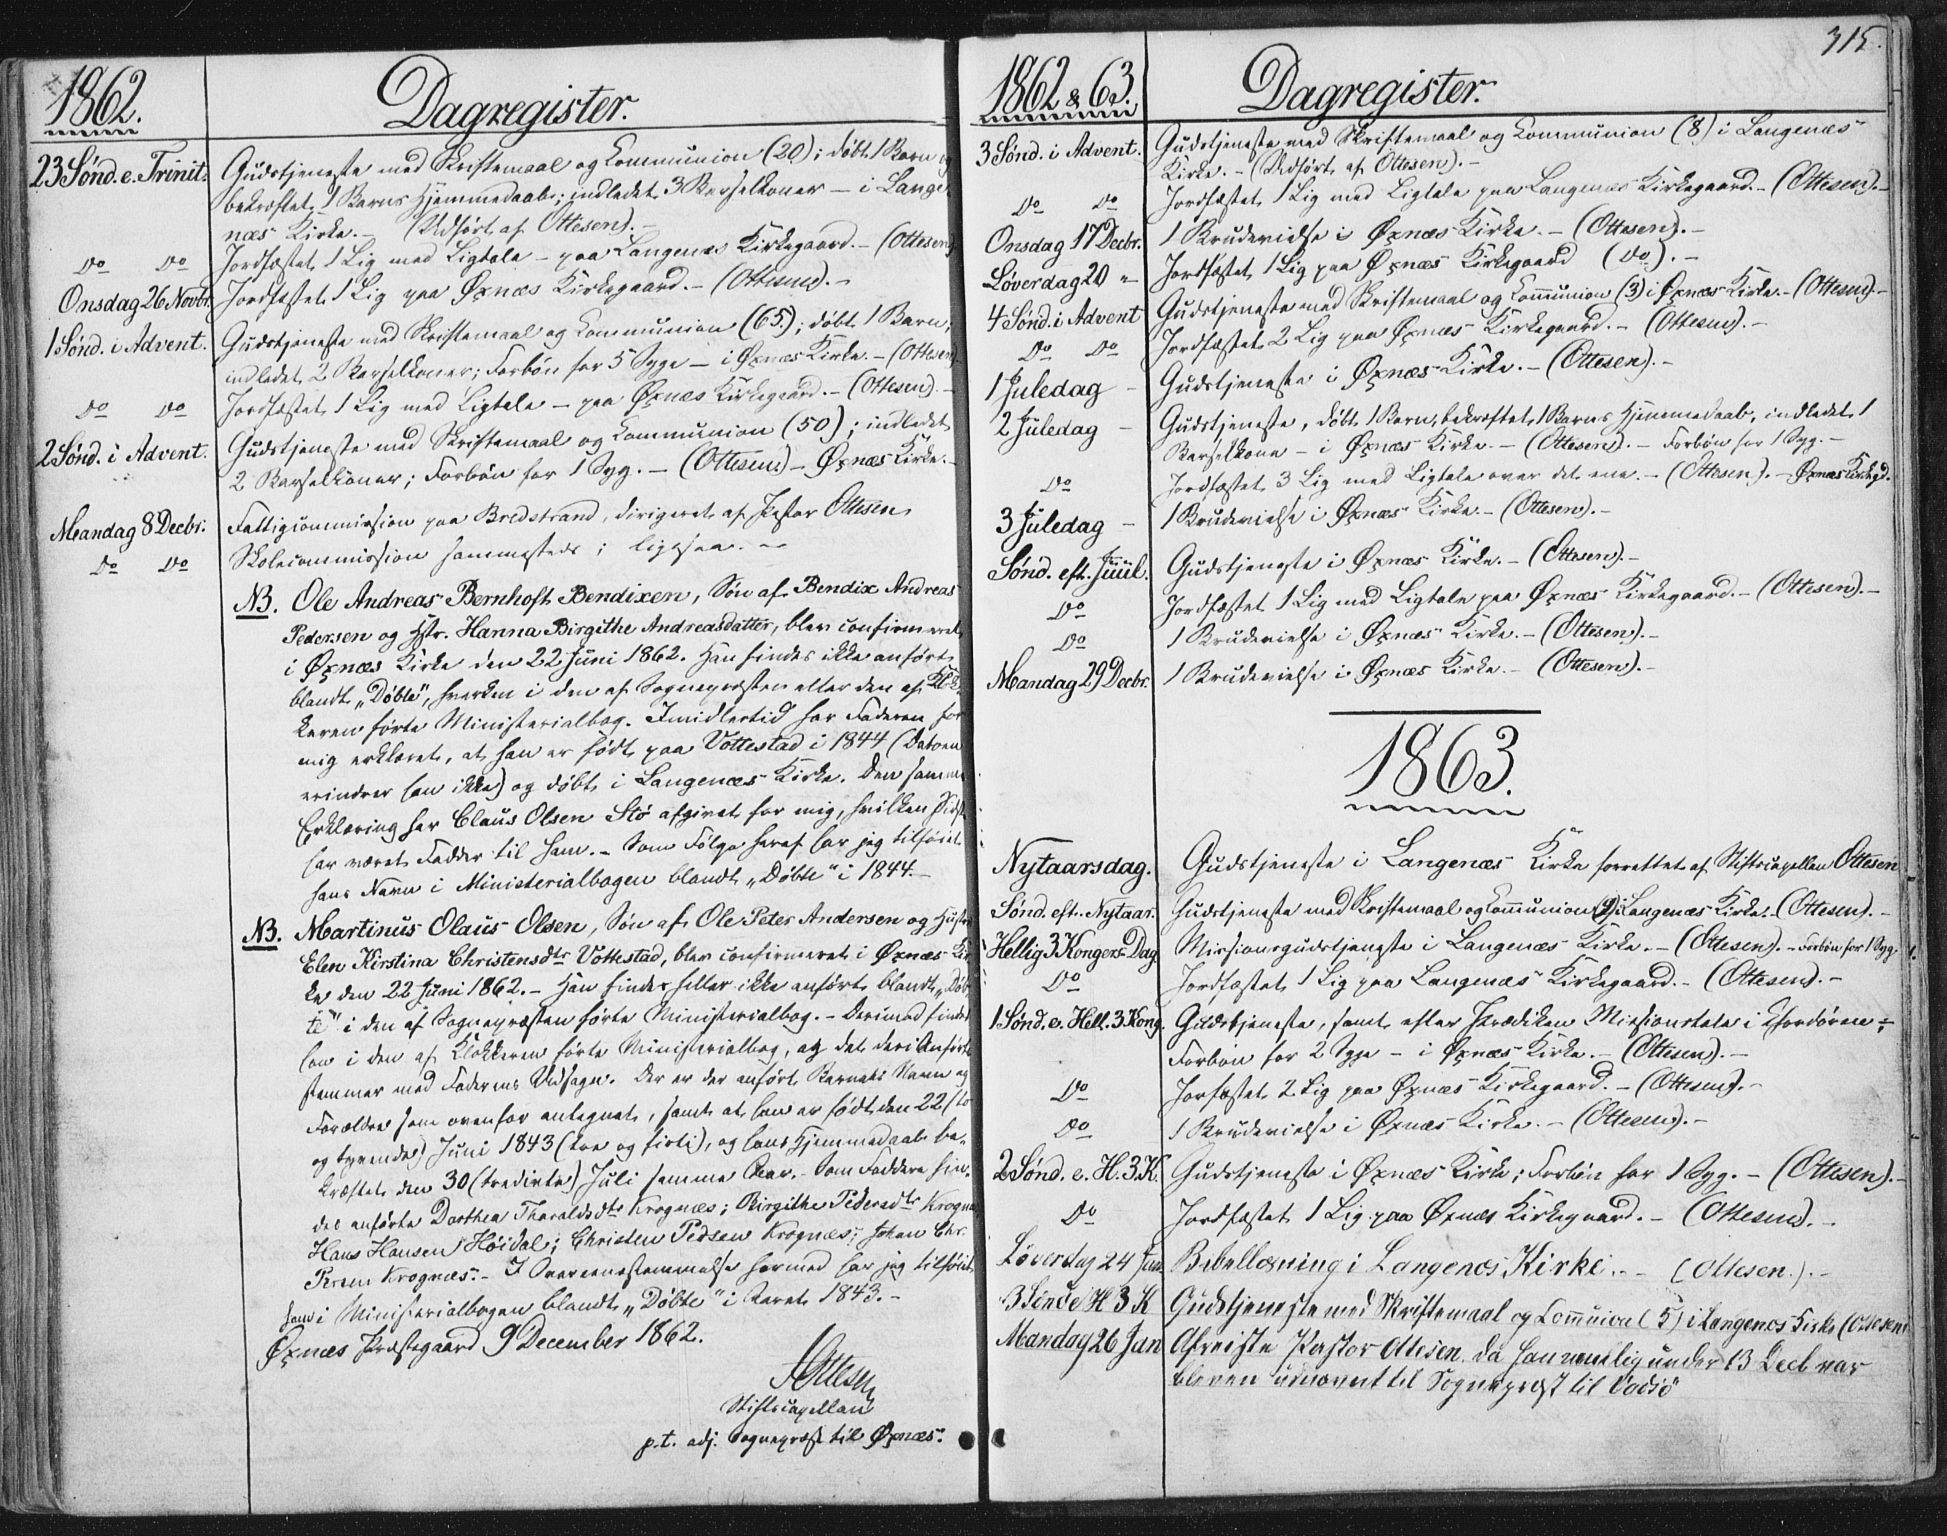 1862.
Dagregister.
23 Sønd. e. Trinit. Gudstjeneste med Skriftemaal og Communion (20); døbt 1 Barn og
bekræftet 1 Barns Hjemmedaab; indledet 3 Barselkoner – i Lange
næs Kirke. – (Udført af Ottesen). –
Do Do Jordfæstet 1 Lig med Ligtale – paa Langenæs Kirkegaard. – (Ottesen)
Onsdag 26 Novbr. Jordfæstet 1 Lig paa Øxnæs Kirkegaard. – (Ottesen). –
1 Sønd. i Advent. Gudstjeneste med Skriftemaal og Communion (65.); døbt 1 Barn;
indledet 2 Barselkoner; Forbøn for 5 Syge – i Øxnæs Kirke. – (Ottesen)
Do Do Jordfæstet 1 Lig med Ligtale – paa Øxnæs Kirkegaard. – (Ottesen). –
2 Sønd. i Advent. Gudstjeneste med Skriftemaal og Communion (50); indledet
2 Barselkoner; Forbøn for 1 Syg. – (Ottesen) – Øxnæs Kirke. –
Mandag 8 Decbr. Fattigcommission paa Bredstrand, dirigeret af Pastor Ottesen
Do Do Skolecommission sammesteds; ligesaa. –
NB. Ole Andreas Bernhoft Bendixen, Søn af Bendix Andreas
Pedersen og Hstr. Hanna Birgithe Andreasdatter, blev confirmeret
i Øxnæs Kirke den 22 Juni 1862. Han findes ikke anført
blandt „Døbte", hverken i den af Sognepræsten eller den af Klok-
keren førte Ministerialbog. Imidlertid har Faderen for
mig erklæret, at han er født paa Vottestad i 1844 (Datoen
erindrer han ikke) og døbt i Langenæs Kirke. Den samme
Erklæring har Claus Olsen Stø afgivet for mig, hvilken Sidste
har været Fadder til ham. – Som Følge heraf har jeg tilføiet
hans Navn i Ministerialbogen blandt „Døbte" i 1844. –
NB. Martinus Olaus Olsen, Søn af Ole Peter Andersen og Hustru
Elen Kirstina Christensdtr Vottestad, blev confirmeret i Øxnæs Kir
ke den 22 Juni 1862. – Han findes heller ikke anført blandt „Døb
te" i den af Sognepræsten førte Ministerialbog. – Derimod findes
han i den af Klokkeren førte Ministerialbog, og det deri Anførte
stemmer med Faderens Udsagn. Der er der anført Barnets Navn og
Forældre som ovenfor antegnet, samt at han er født den 22 (to
og tyvende) Juni 1843 (tre og firti), og hans Hjemmedaab be-
kræftet den 30 (tredivte) Juli samme Aar. – Som Faddere fin-
des anførte Dorthea Tharaldsdtr Krognæs; Birgithe Pedersdtr Krognæs
Hans Hansen Høidal; Christen Pedsen Krognæs; Johan Chr.
Krognæs. – I Overeensstemmelse hermed har jeg tilføiet
ham i Ministerialbogen blandt „Døbte" i Aaret 1843. –
Øxnæs Præstegaard 9 December 1862.
Ottesen
Stiftscapellan
p.t. adj. Sognepræst til Øxnæs.
315.
1862 & 63.
Dagregister.
3 Sønd. i Advent. Gudstjeneste med Skriftemaal og Communion (8) i Langenæs
Kirke. – (Udført af Ottesen). –
Do Do Jordfæstet 1 Lig med Ligtale paa Langenæs Kirkegaard. – (Ottesen). –
Onsdag 17 Decbr. 1 Brudevielse i Øxnæs Kirke. – (Ottesen). –
Løverdag 20 " Jordfæstet 1 Lig paa Øxnæs Kirkegaard (Do). –
4 Sønd. i Advent Gudstjeneste med Skriftemaal og Communion (3) i Øxnæs Kirke. – (Ottesen) –
Do Do Jordfæstet 2 Lig paa Øxnæs Kirkegaard. – (Ottesen). –
1 Juledag – Gudstjeneste i Øxnæs Kirke. – (Ottesen). –
2 Juledag – Gudstjeneste, døbt 1 Barn, bekræftet 1 Barns Hjemmedaab, indledet 1
Barselkone – i Øxnæs Kirke. – (Ottesen). – Forbøn for 1 Syg. –
Do Jordfæstet 3 Lig med Ligtale over det ene. – (Ottesen). – Øxnæs Kirkegd.
3 Juledag – 1 Brudevielse i Øxnæs Kirke. – (Ottesen). –
Sønd. eft. Juul. Gudstjeneste i Øxnæs Kirke. – (Ottesen). –
Do Jordfæstet 1 Lig med Ligtale paa Øxnæs Kirkegaard. – (Ottesen). –
Do 1 Brudevielse i Øxnæs Kirke. – (Ottesen). –
Mandag 29 Decbr. 1 Brudevielse i Øxnæs Kirke. – (Ottesen). –
1863.
Nytaarsdag. Gudstjeneste i Langenæs Kirke forrettet af Stiftscapellan Ottesen
Sønd. eft. Nytaar. Gudstjeneste med Skriftemaal og Communion i Langenæs Kirke. – (Ottesen). –
Hellig 3 Kongers Dag Missionsgudstjeneste i Langenæs Kirke. – (Ottesen). – Forbøn for 1 Syg.
Do Jordfæstet 1 Lig paa Langenæs Kirkegaard. – (Ottesen). –
1 Sønd. e. Hell. 3 Kong. Gudstjeneste, samt efter Prædiken Missionstale i Chordøren –
Forbøn for 2 Syge – i Øxnæs Kirke. – (Ottesen). –
Do Jorfæstet 2 Lig paa Øxnæs Kirkegaard. – (Ottesen). –
Do 1 Brudevielse i Øxnæs Kirke. – (Ottesen). –
2 Sønd. e. H. 3. K. Gudstjeneste i Øxnæs Kirke; Forbøn for 1 Syg. – (Ottesen). –
Do Jordfæstet 1 Lig paa Øxnæs Kirkegaard. – (Ottesen). –
Løverdag 24 Jan Bibellæsning i Langenæs Kirke. – (Ottesen). –
3 Sønd e H 3 K Gudstjeneste med Skriftemaal og Communion (5) i Langenæs Kirke (Ottesen)
Mandag 26 Jan Afreiste Pastor Ottesen, da han nemlig under 13 Decb var
bleven udnævnt til Sognepræst til Vadsø